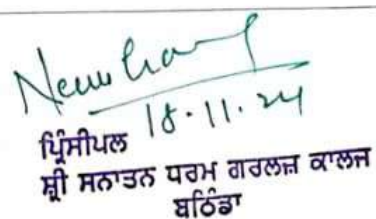 18.11.24
ਪ੍ਰਿੰਸੀਪਲ
ਸ਼੍ਰੀ ਸਨਾਤਨ ਧਰਮ ਗਰਲਜ਼ ਕਾਲਜ
ਬਠਿੰਡਾ